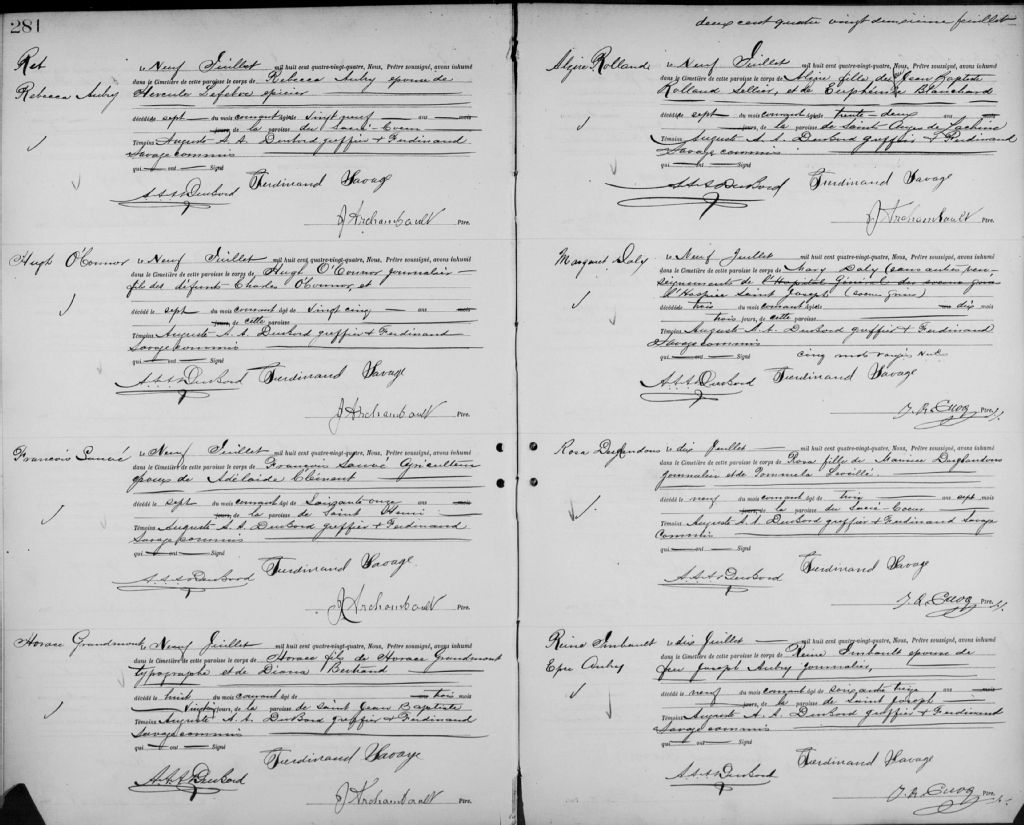 281
Ret
Rebecca Aubry
le Neuf Juillet mil huit cent quatre-vingt-quatre, Nous, Prêtre soussigné, avons inhumé
dans le Cimetière de cette paroisse le corps de Rebecca Aubry épouse de
Hercule Lefebre épicier
décédé le sept du mois courant âgé de vingt neuf ans mois
jours, de la paroisse du Sacré-Coeur
Témoins Auguste A. A. DuBord greffier & Ferdinand
Savage commis
qui ont Signé
A.A.A DuBord Ferdinand Savage
J Archambault Ptre.
Hugh O'Connor
le Neuf Juillet mil huit cent quatre-vingt-quatre, Nous, Prêtre soussigné, avons inhumé
dans le Cimetière de cette paroisse le corps de Hugh O'Connor journalier
fils des défunts Charles O'Connor et
décédé le sept du mois courant âgé de vingt cinq ans mois
jours, de cette paroisse
Témoins Auguste A. A. DuBord greffier & Ferdinand
Savage commis
qui ont Signé
A.A.A DuBord Ferdinand Savage
J Archambault Ptre.
Francois Sauvé
le Neuf Juillet mil huit cent quatre-vingt-quatre, Nous, Prêtre soussigné, avons inhumé
dans le Cimetière de cette paroisse le corps de François Sauvé Agriculteur
époux de Adélaide Clément
décédé le sept du mois courant âgé de Soixante onze ans mois
jours, de la paroisse de Saint Henri
Témoins Auguste A. A. DuBord greffier & Ferdinand
Savage commis
qui ont Signé
A.A.A DuBord Ferdinand Savage
J Archambault Ptre.
Horace Grandmont
le Neuf Juillet mil huit cent quatre-vingt-quatre, Nous, Prêtre soussigné, avons inhumé
dans le Cimetière de cette paroisse le corps de Horace fils de Horace Grandmont
typographe et de Diana Bertrand
décédé le huit du mois courant âgé de ans trois mois
Vingt jours, de la paroisse de Saint Jean Baptiste
Témoins Auguste A. A. DuBord greffier & Ferdinand
Savage commis
qui ont Signé
A.A.A DuBord Ferdinand Savage
J Archambault Ptre.
deux cent quatre vingt deuxième feuillet
Algire Rolland
le Neuf Juillet mil huit cent quatre-vingt-quatre, Nous, Prêtre soussigné, avons inhumé
dans le Cimetière de cette paroisse le corps de Algire fille de Jean Baptiste
Rolland Sellier, et de Euphémie Blanchard
décédé le sept du mois courant âgé de trente-deux ans mois
jours, de la paroisse de Saints Anges de Lachine
Témoins Auguste A. A. DuBord greffier & Ferdinand
Savage commis
qui ont Signé
A.A.A DuBord Ferdinand Savage
J Archambault Ptre.
Margaret Daly
le Neuf Juillet mil huit cent quatre-vingt-quatre, Nous, Prêtre soussigné, avons inhumé
dans le Cimetière de cette paroisse le corps de Mary Daly (sans autres ren-
seignements de l'Hopital Général des soeurs grises
l'Hospice Saint Joseph (soeurs grises)
décédé le trois du mois courant âgé de dix mois
trois jours, de cette paroisse
Témoins Auguste A. A. DuBord greffier & Ferdinand
Savage commis
qui ont Signé cinq mots rayés nuls
A.A.A DuBord Ferdinand Savage
Ptre.
Rosa
le dix Juillet mil huit cent quatre-vingt-quatre, Nous, Prêtre soussigné, avons inhumé
dans le Cimetière de cette paroisse le corps de Rosa fille de Maurice
journalier et de Léveillé
décédé le neuf du mois courant âgé de trois ans sept mois
jours, de la paroisse du Sacré-Coeur
Témoins Auguste A. A. DuBord greffier & Ferdinand Savage
Commis
qui ont Signé
A.A.A DuBord Ferdinand Savage
Ptre.
Reine Imbault
Epse Aubry
le dix Juillet mil huit cent quatre-vingt-quatre, Nous, Prêtre soussigné, avons inhumé
dans le Cimetière de cette paroisse le corps de Reine Imbault épouse de
feu Joseph Aubry journalier,
décédé le neuf du mois courant âgé de soixante treize ans mois
jours, de la paroisse de Saint Joseph
Témoins Auguste A. A. DuBord greffier & Ferdinand
Savage commis
qui ont Signé
A.A.A DuBord Ferdinand Savage
Ptre.